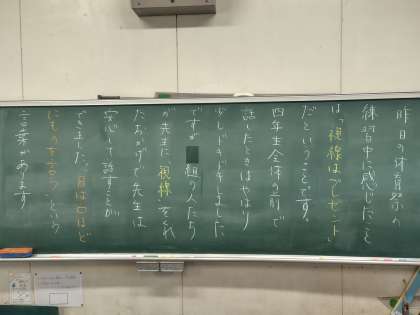 昨日の体育祭の
練習中に感じたこと
は「視線はプレゼント」
だということです。
四年生全体の前で
話したときはやはり
少しドキドキしました
ですが 組の人たち
が先生に「視線」をくれ
たおかげで先生は
安心して話すことが
できました。目は口ほど
にものを言うという
言葉があります